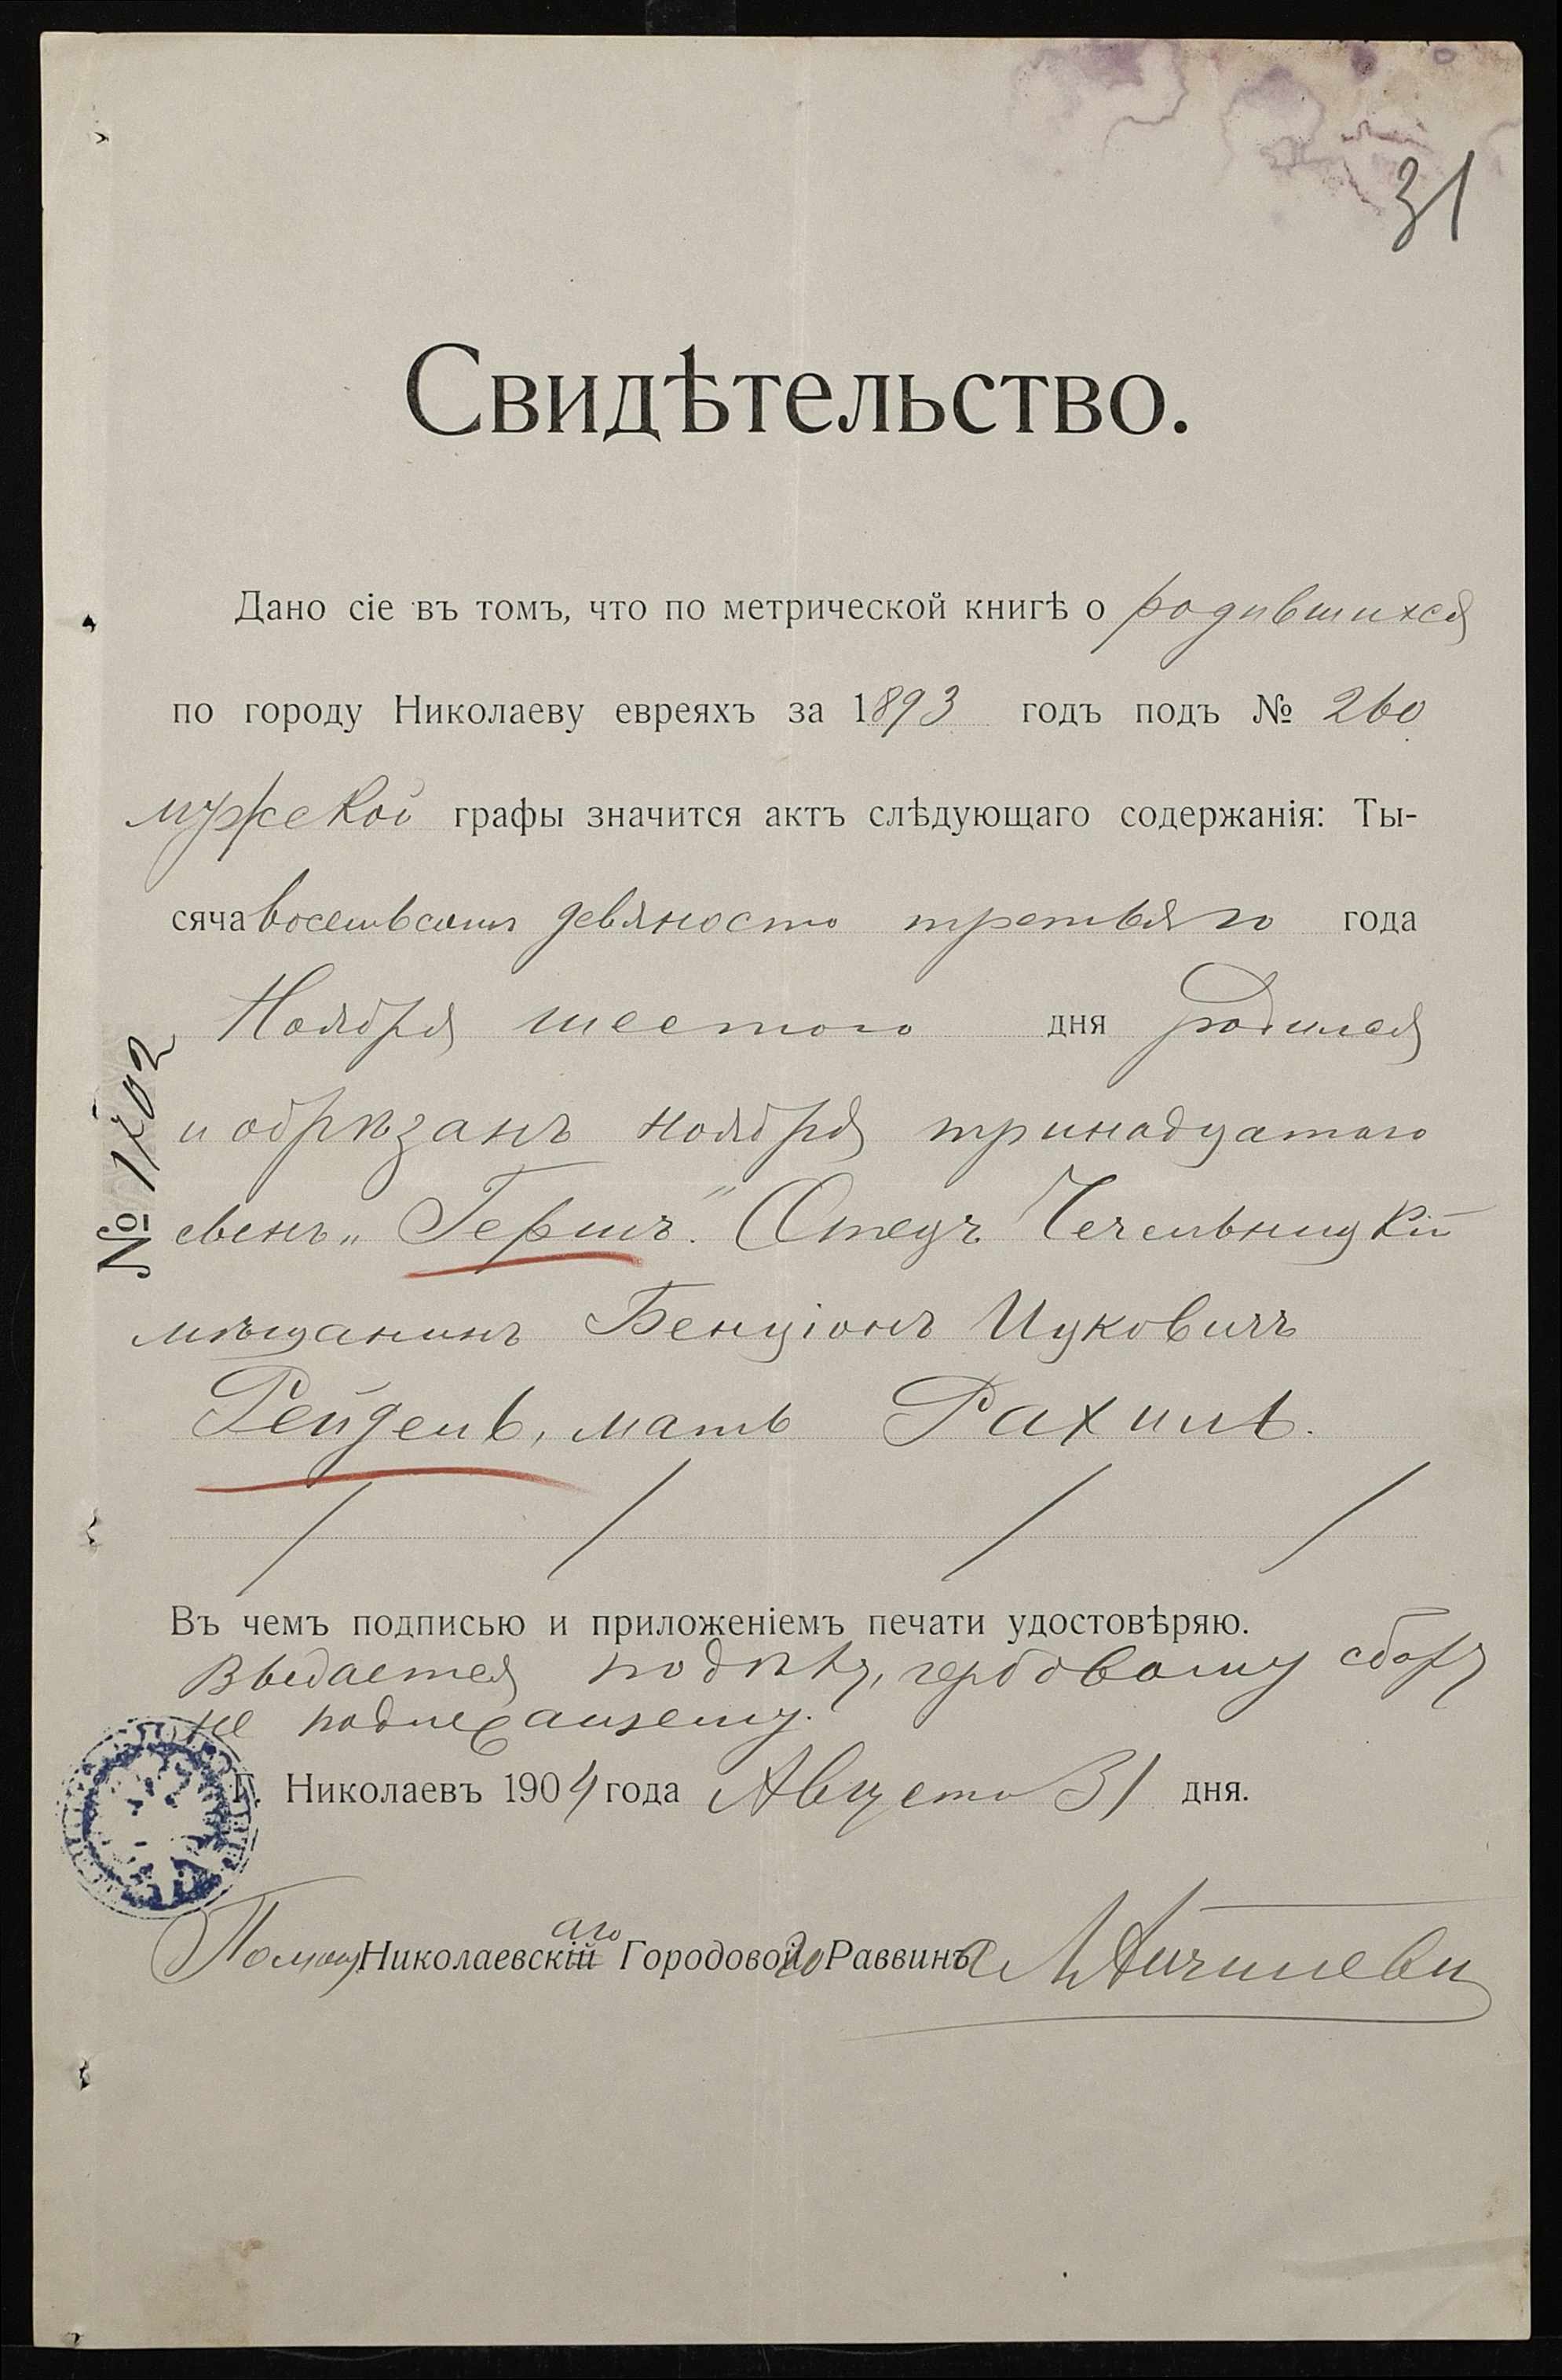 31
Свидѣтельство.
Дано сіе въ томъ, что по метрической книгѣ о родившихся
по городу Николаеву евреяхъ за 1893 годъ подъ № 260
мужской графы значится актъ слѣдующаго содержанія: Ты-
сяча восемьсотъ девяносто третьяго года
Ноября шестого дня родился
и обрѣзанъ ноября тринадцатого
сынъ „Гершъ“. (Отецъ Чечельницкій
мѣщанинъ Бенціонъ Ицковичъ
Рейдель, мать Рахиль.
Въ чемъ подписью и приложеніемъ печати удостовѣряю.
Выдается гербовому сбору
не подлежащему.
Г. Николаевъ 1904 года Августа 31 дня.
Помощ. Николаевскаго Городового Раввина
№ 1702